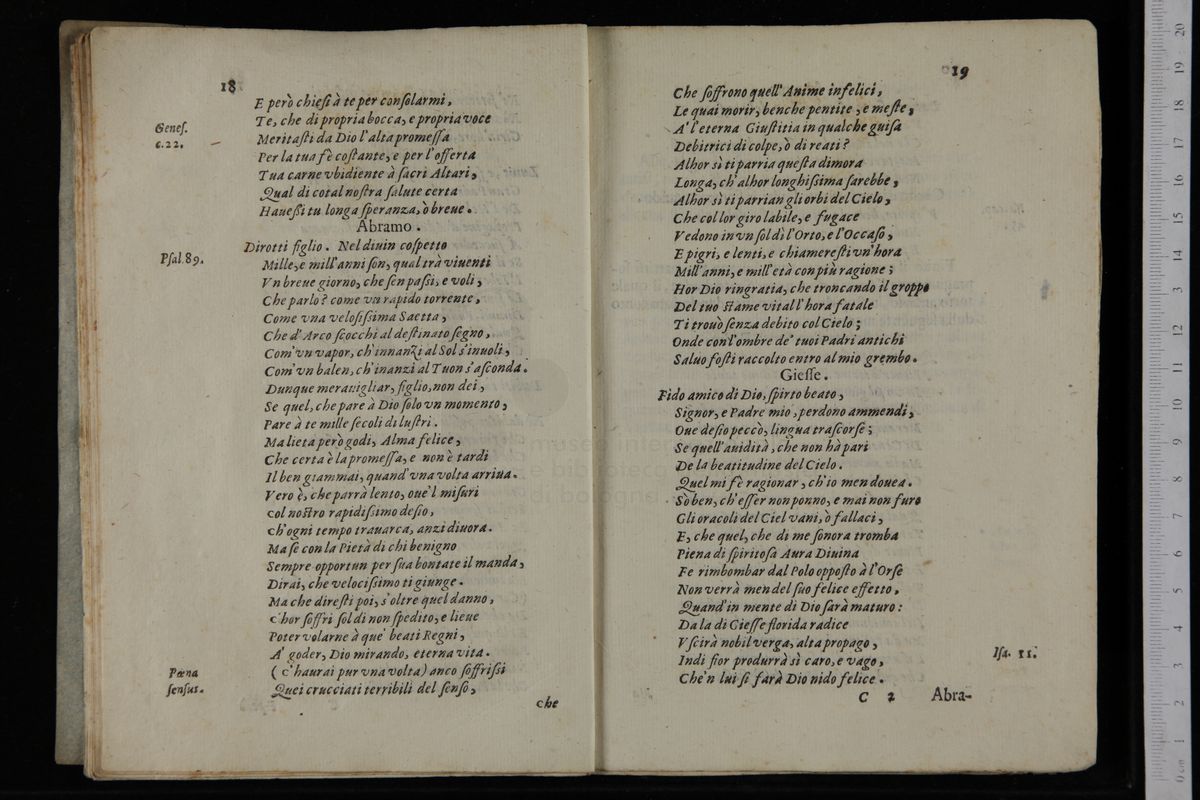 18
E però chieſi à te per conſolarmi,
Te, che di propria bocca, e propria voce
Geneſ.
6.22.
Meritaſti da Dio l'alta promeſſa
Per la tua fè coſtante, e per l'offerta
Tua carne vbidiente à ſacri Altari,
Qual di cotal noſtra ſalute certa
Haueſsi tu longa ſperanza, ò breue.
Abramo.
Dirotti figlio. Nel diuin coſpetto
Pſal.89.
Mille, e mill'anni ſon, qual trà viuenti
Vn breue giorno, che ſen paſsi, e voli,
Che parlo? come vn rapido torrente,
Come vna velociſsima Saetta,
Che d'Arco ſcocchi al deſtinato ſegno,
Com'vn vapor, ch'innanzi al Sol s'inuoli,
Com'vn balen, ch'inanzi al Tuon s'aſconda.
Dunque merauigliar, figlio, non dei,
Se quel, che pare à Dio ſolo vn momento,
Pare à te mille ſecoli di luſtri.
Ma lieta però godi, Alma felice,
Che certa è la promeſſa, e non è tardi
Il ben giammai, quand'vna volta arriua.
Vero è, che parrà lento, oue'l miſuri
Col noſtro rapidiſsimo deſio,
Ch'ogni tempo trauarca, anzi diuora.
Ma ſe con la Pietà di chi benigno
Sempre opportun per ſua bontate il manda,
Dirai, che velociſsimo ti giunge.
Ma che direſti poi, s'oltre quel danno,
C'hor ſoffri ſol di non ſpedito, e lieue
Poter volarne à que' beati Regni,
A' goder, Dio mirando, eterna vita.
Pœna
ſenſus.
( C'haurai pur vna volta) anco ſoffriſsi
Quei crucciati terribili del ſenſo,
che
19
Che ſoffrono quell'Anime infelici,
Le quai morir, benche pentite, e meſte,
A' l'eterna Giuſtitia in qualche guiſa
Debitrici di colpe, ò di reati?
Alhor sì ti parria queſta dimora
Longa, ch'alhor longhiſsima ſarebbe,
Alhor sì ti parrian gli orbi del Cielo,
Che col lor giro labile, e fugace
Vedono in vn ſol dì l'Orto, e l'Occaſo,
E pigri, e lenti, e chiamereſti vn'hora
Mill'anni, e mill'età con più ragione;
Hor Dio ringratia, che troncando il groppo
Del tuo ſtame vital l'hora fatale
Ti trouò ſenza debito col Cielo;
Onde con l'ombre de' tuoi Padri antichi
Saluo foſti raccolto entro al mio grembo.
Gieſſe.
Fido amico di Dio, ſpirto beato,
Signor, e Padre mio, perdono ammendi,
Oue deſio peccò, lingua traſcorſe;
Se quell'auidità, che non hà pari
De la beatitudine del Cielo.
Quel mi fè ragionar, ch'io men douea.
Sò ben, ch'eſſer non ponno, e mai non furo
Gli oracoli del Ciel vani, ò fallaci,
E, che quel, che di me ſonora tromba
Piena di ſpiritoſa Aura Diuina
Fe rimbombar dal Polo oppoſto à l'Orſe
Non verrà men del ſuo felice effetto,
Quand'in mente di Dio ſarà maturo:
Da la di Gieſſe florida radice
Vſcirà nobil verga, alta propago,
Iſa. 11.
Indi fior produrrà sì caro, e vago,
Che'n lui ſi farà Dio nido felice.
C 2
Abra-